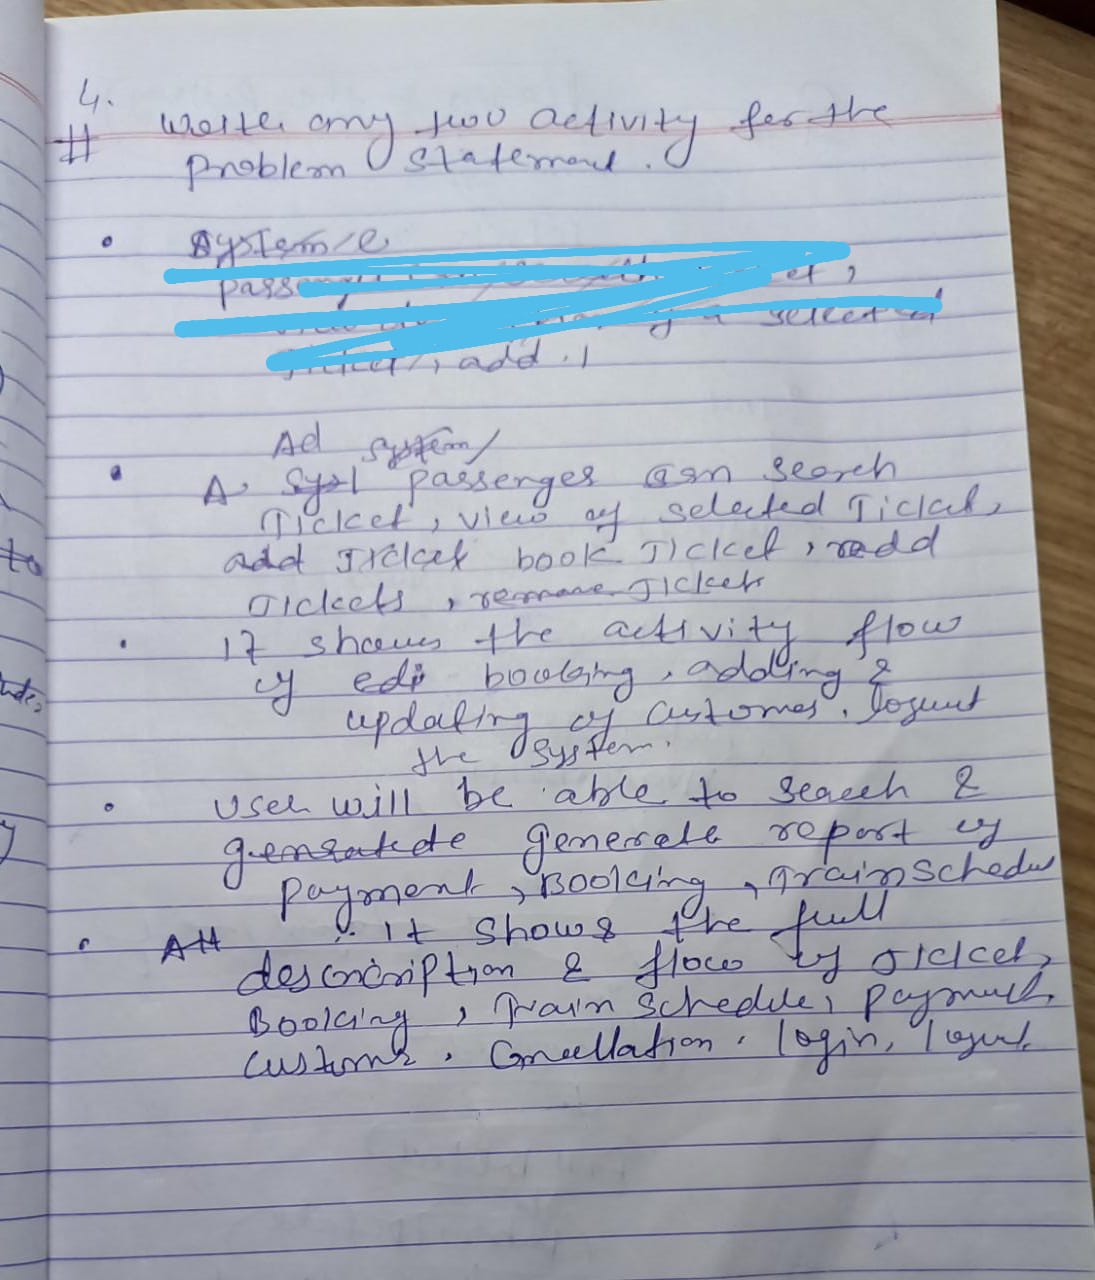 4.
# Write any two activity for the
problem statement.
• System/e
pass et,
selected
Ticket, add.
Ad system/
• A. Syst passenges can search
Ticket, view of selected Ticket,
add Ticket book Ticket, radd
Tickets, remove Tickets
• It shows the activity flow
of edi booking, adding &
updating of customer. logout
the system.
• User will be able to search &
gensatede generate report of
payment, Booking, Train Schedu
• Att It shows the full
descncription & flow of ticket,
Booking, Train Schedule, payment,
customer, Cancellation. login, logout.
to